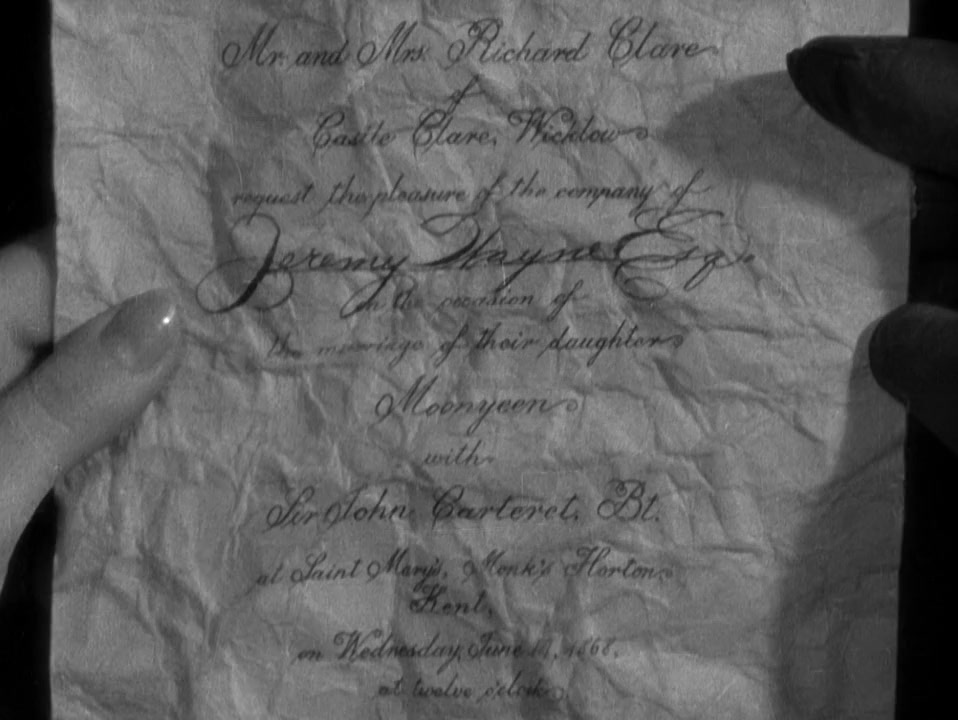 Mr. and Mrs. Richard Clare
of
Castle Clare, Wicklow
request the pleasure of the company of
Jeremy Wayne Esq.
on the occasion of
the marriage of their daughter
Moonyeen
with
Sir John Carteret, Bt.
at Saint Mary's, Monk's Horton
Kent,
on Wednesday, June 1868,
at twelve o'clock